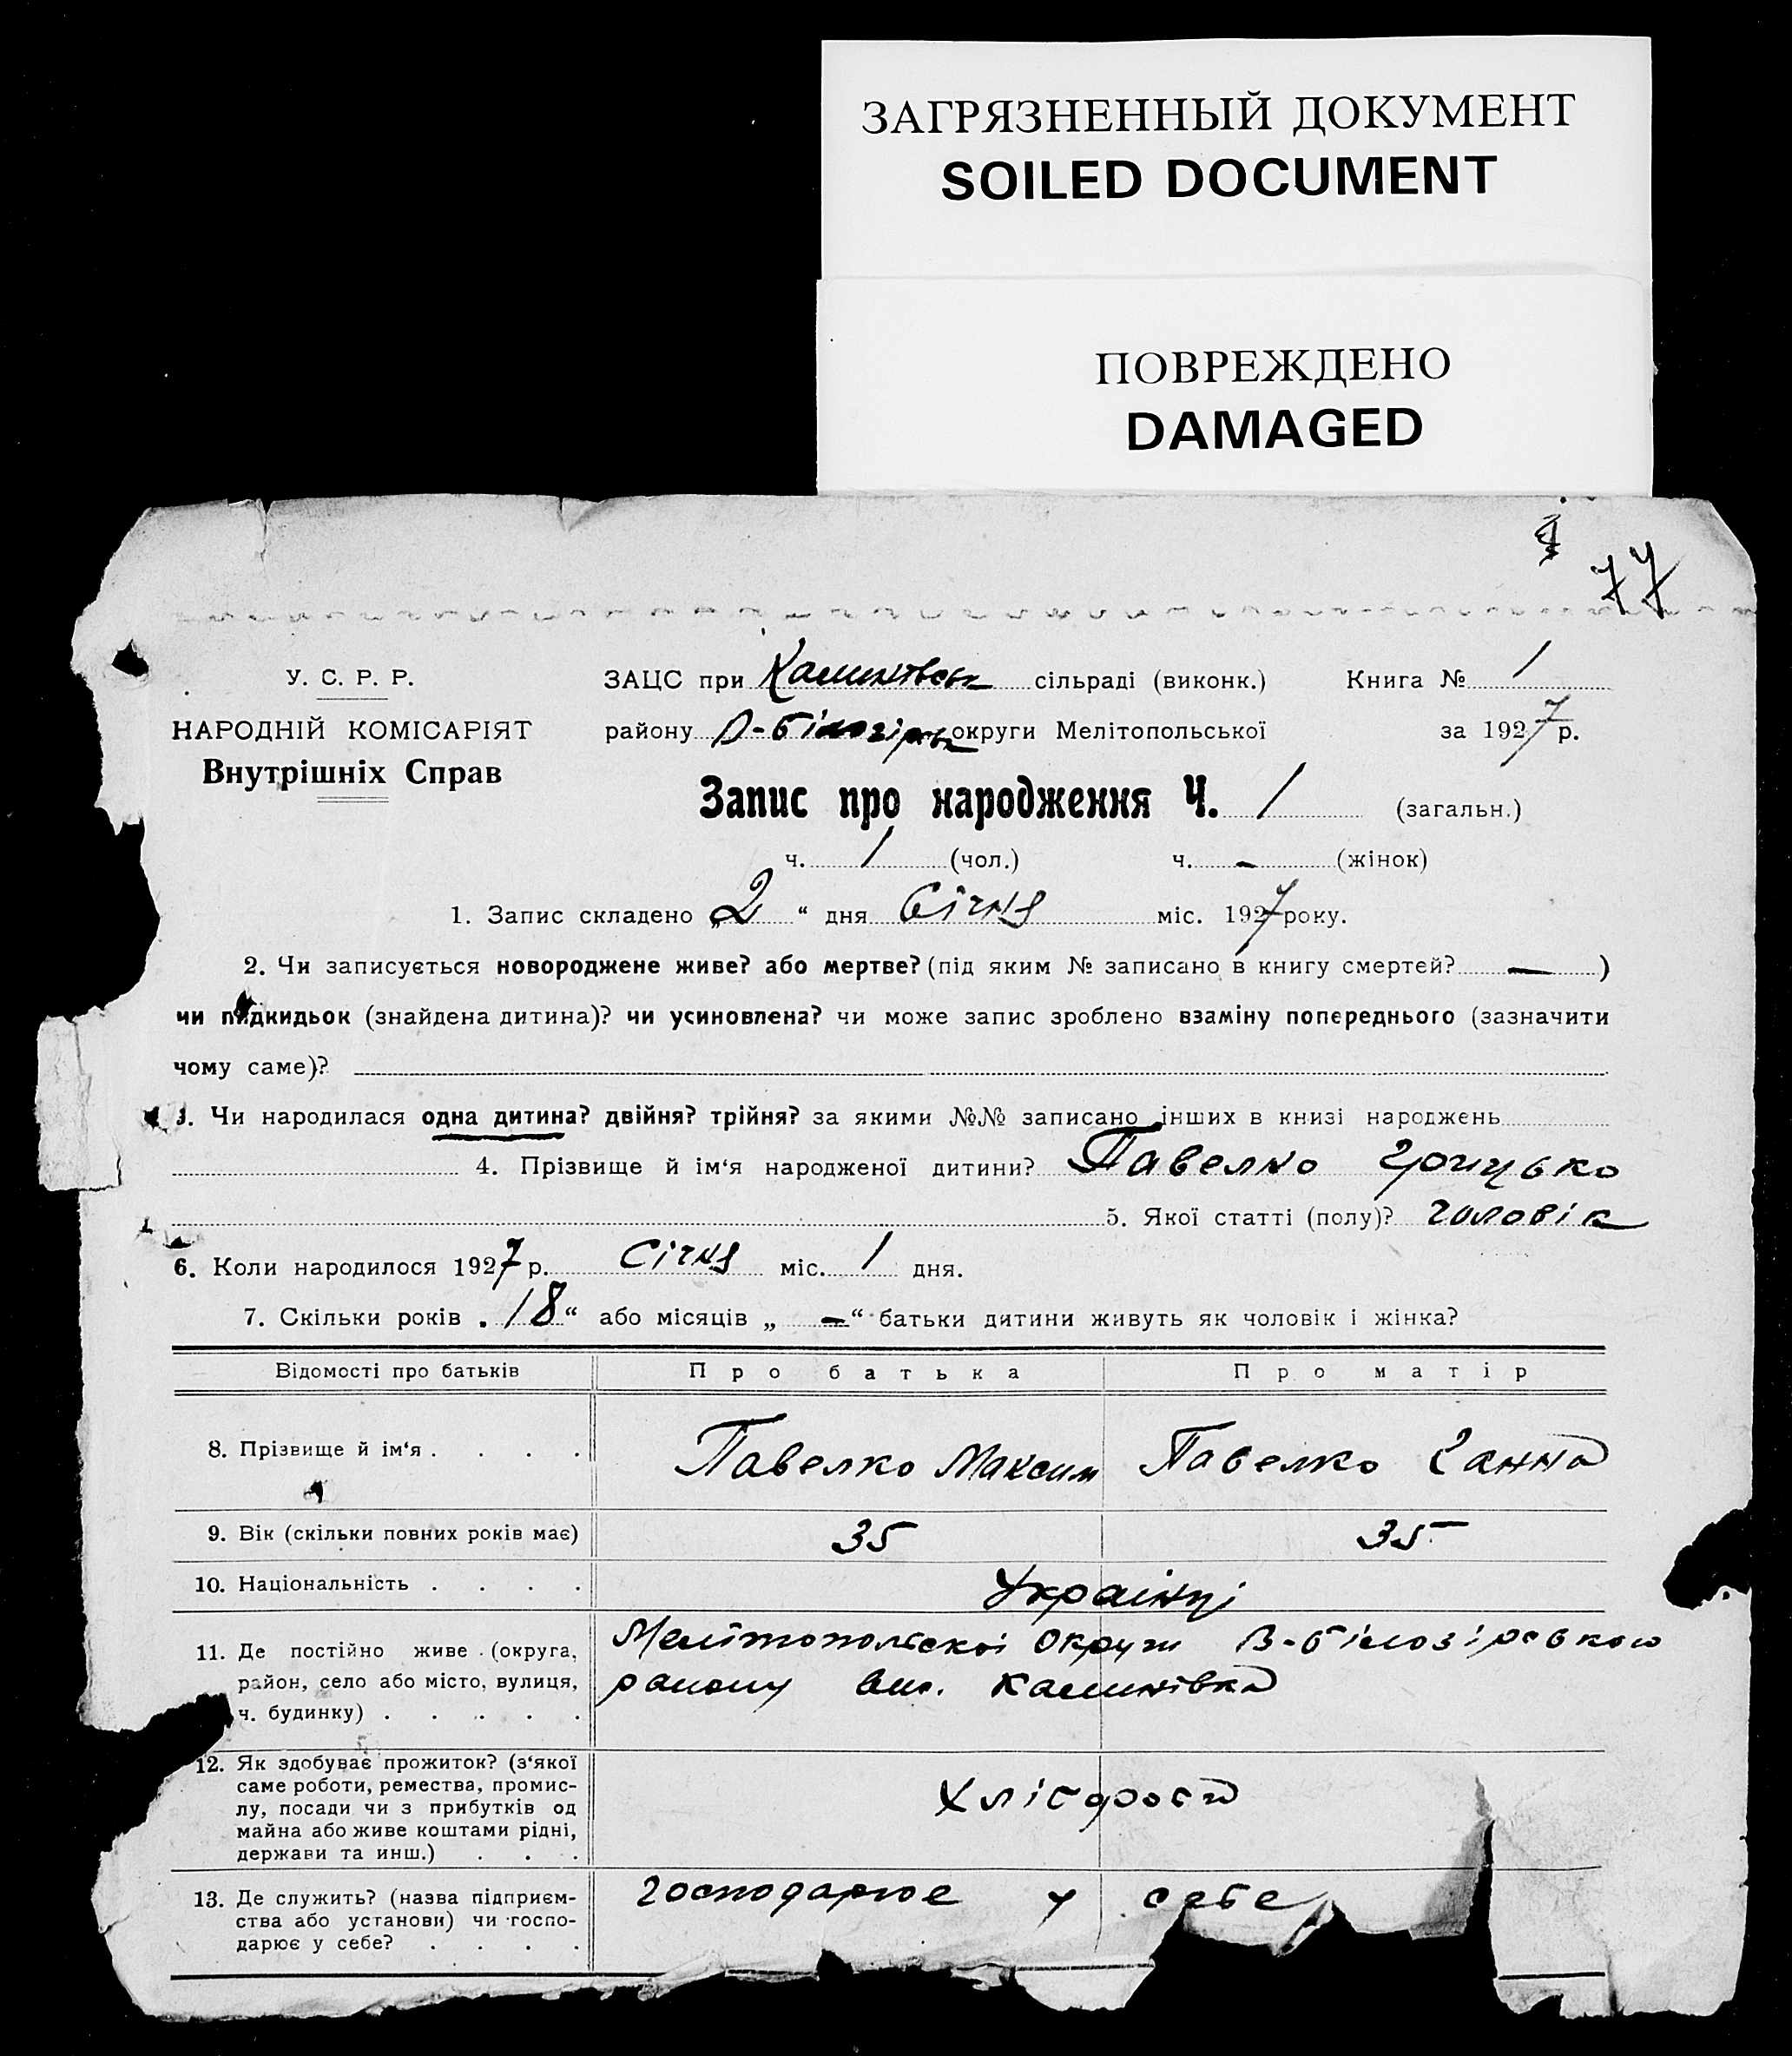 ЗАГРЯЗНЕННЫЙ ДОКУМЕНТ
SOILED DOCUMENT
ПОВРЕЖДЕНО
DAMAGED
77
У. С. Р. Р.
НАРОДНІЙ КОМІСАРІЯТ
Внутрішніх Справ
ЗАЦС при Калинівськ сільраді (виконк.) Книга № 1
району В-Білозірськ округи Мелітопольської за 1927 р.
Запис про народження Ч. 1 (загальн.)
ч. 1 (чол.) ч. — (жінок)
1. Запис складено „2“ дня Січня міс. 1927 року.
2. Чи записується новороджене живе? або мертве? (під яким № записано в книгу смертей? — )
чи підкидьок (знайдена дитина)? чи усиновлена? чи може запис зроблено взаміну попереднього (зазначити
чому саме)?
3. Чи народилася одна дитина? двійня? трійня? за якими №№ записано інших в книзі народжень
4. Прізвище й ім‘я народженої дитини? Павелко Грицько
5. Якої статті (полу)? чоловік
6. Коли народилося 1927 р. Січня міс. 1 дня.
7. Скільки років „18“ або місяців „ — “ батьки дитини живуть як чоловік і жінка?
Відомості про батьків Про батька Про матір
8. Прізвище й ім‘я . . . . Павелко Максим Павелко Ганна
9. Вік (скільки повних років має) 35 35
10. Національність . . . . Українці
11. Де постійно живе (округа, Мелітопольскої Округи В-білозірського
район, село або місто, вулиця, району вис. Калинівка
ч. будинку) . . . . .
12. Як здобуває прожиток? (з‘якої
саме роботи, ремества, промис-
лу, посади чи з прибутків од
майна або живе коштами рідні,
держави та инш.) . . . Хлібороби
13. Де служить? (назва підприєм- господарює у себе
ства або установи) чи госпо-
дарює у себе? . . . .